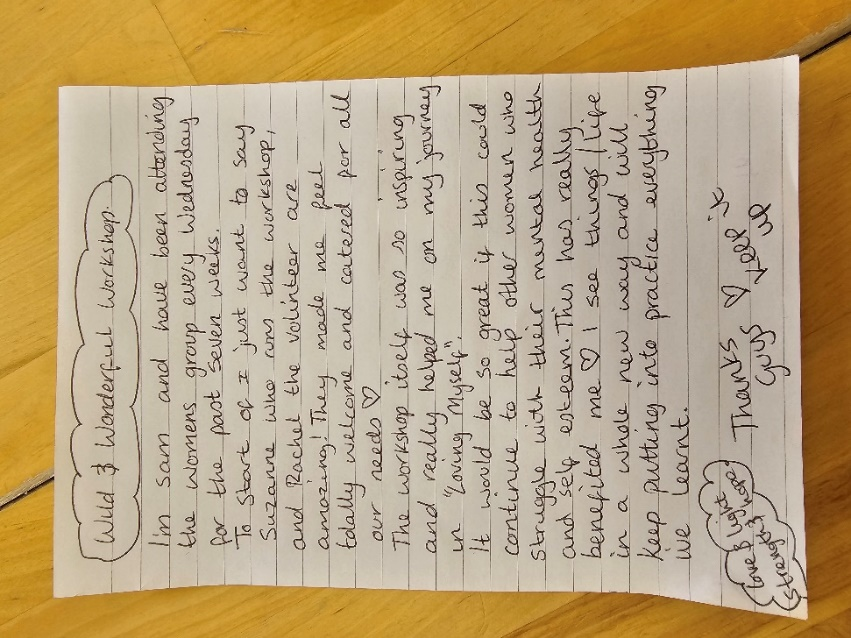 Wild & Wonderful Workshop.
I'm Sam and have been attending
the womens group every Wednesday
for the past seven weeks.
To Start of I just want to say
Suzanne who runs the workshop,
and Rachel the volunteer are
amazing! They made me feel
totally welcome and catered for all
our needs ♡
The workshop itself was so inspiring
and really helped me on my journey
in "Loving Myself".
It would be so great if this could
continue to help other women who
struggle with their mental health
and self esteem. This has really
benefited me ♡ I see things / life
in a whole new way and will
keep putting into practice everything
we learnt.
Love & Light
Strength & hope
Thanks ♡ keep it
guys up